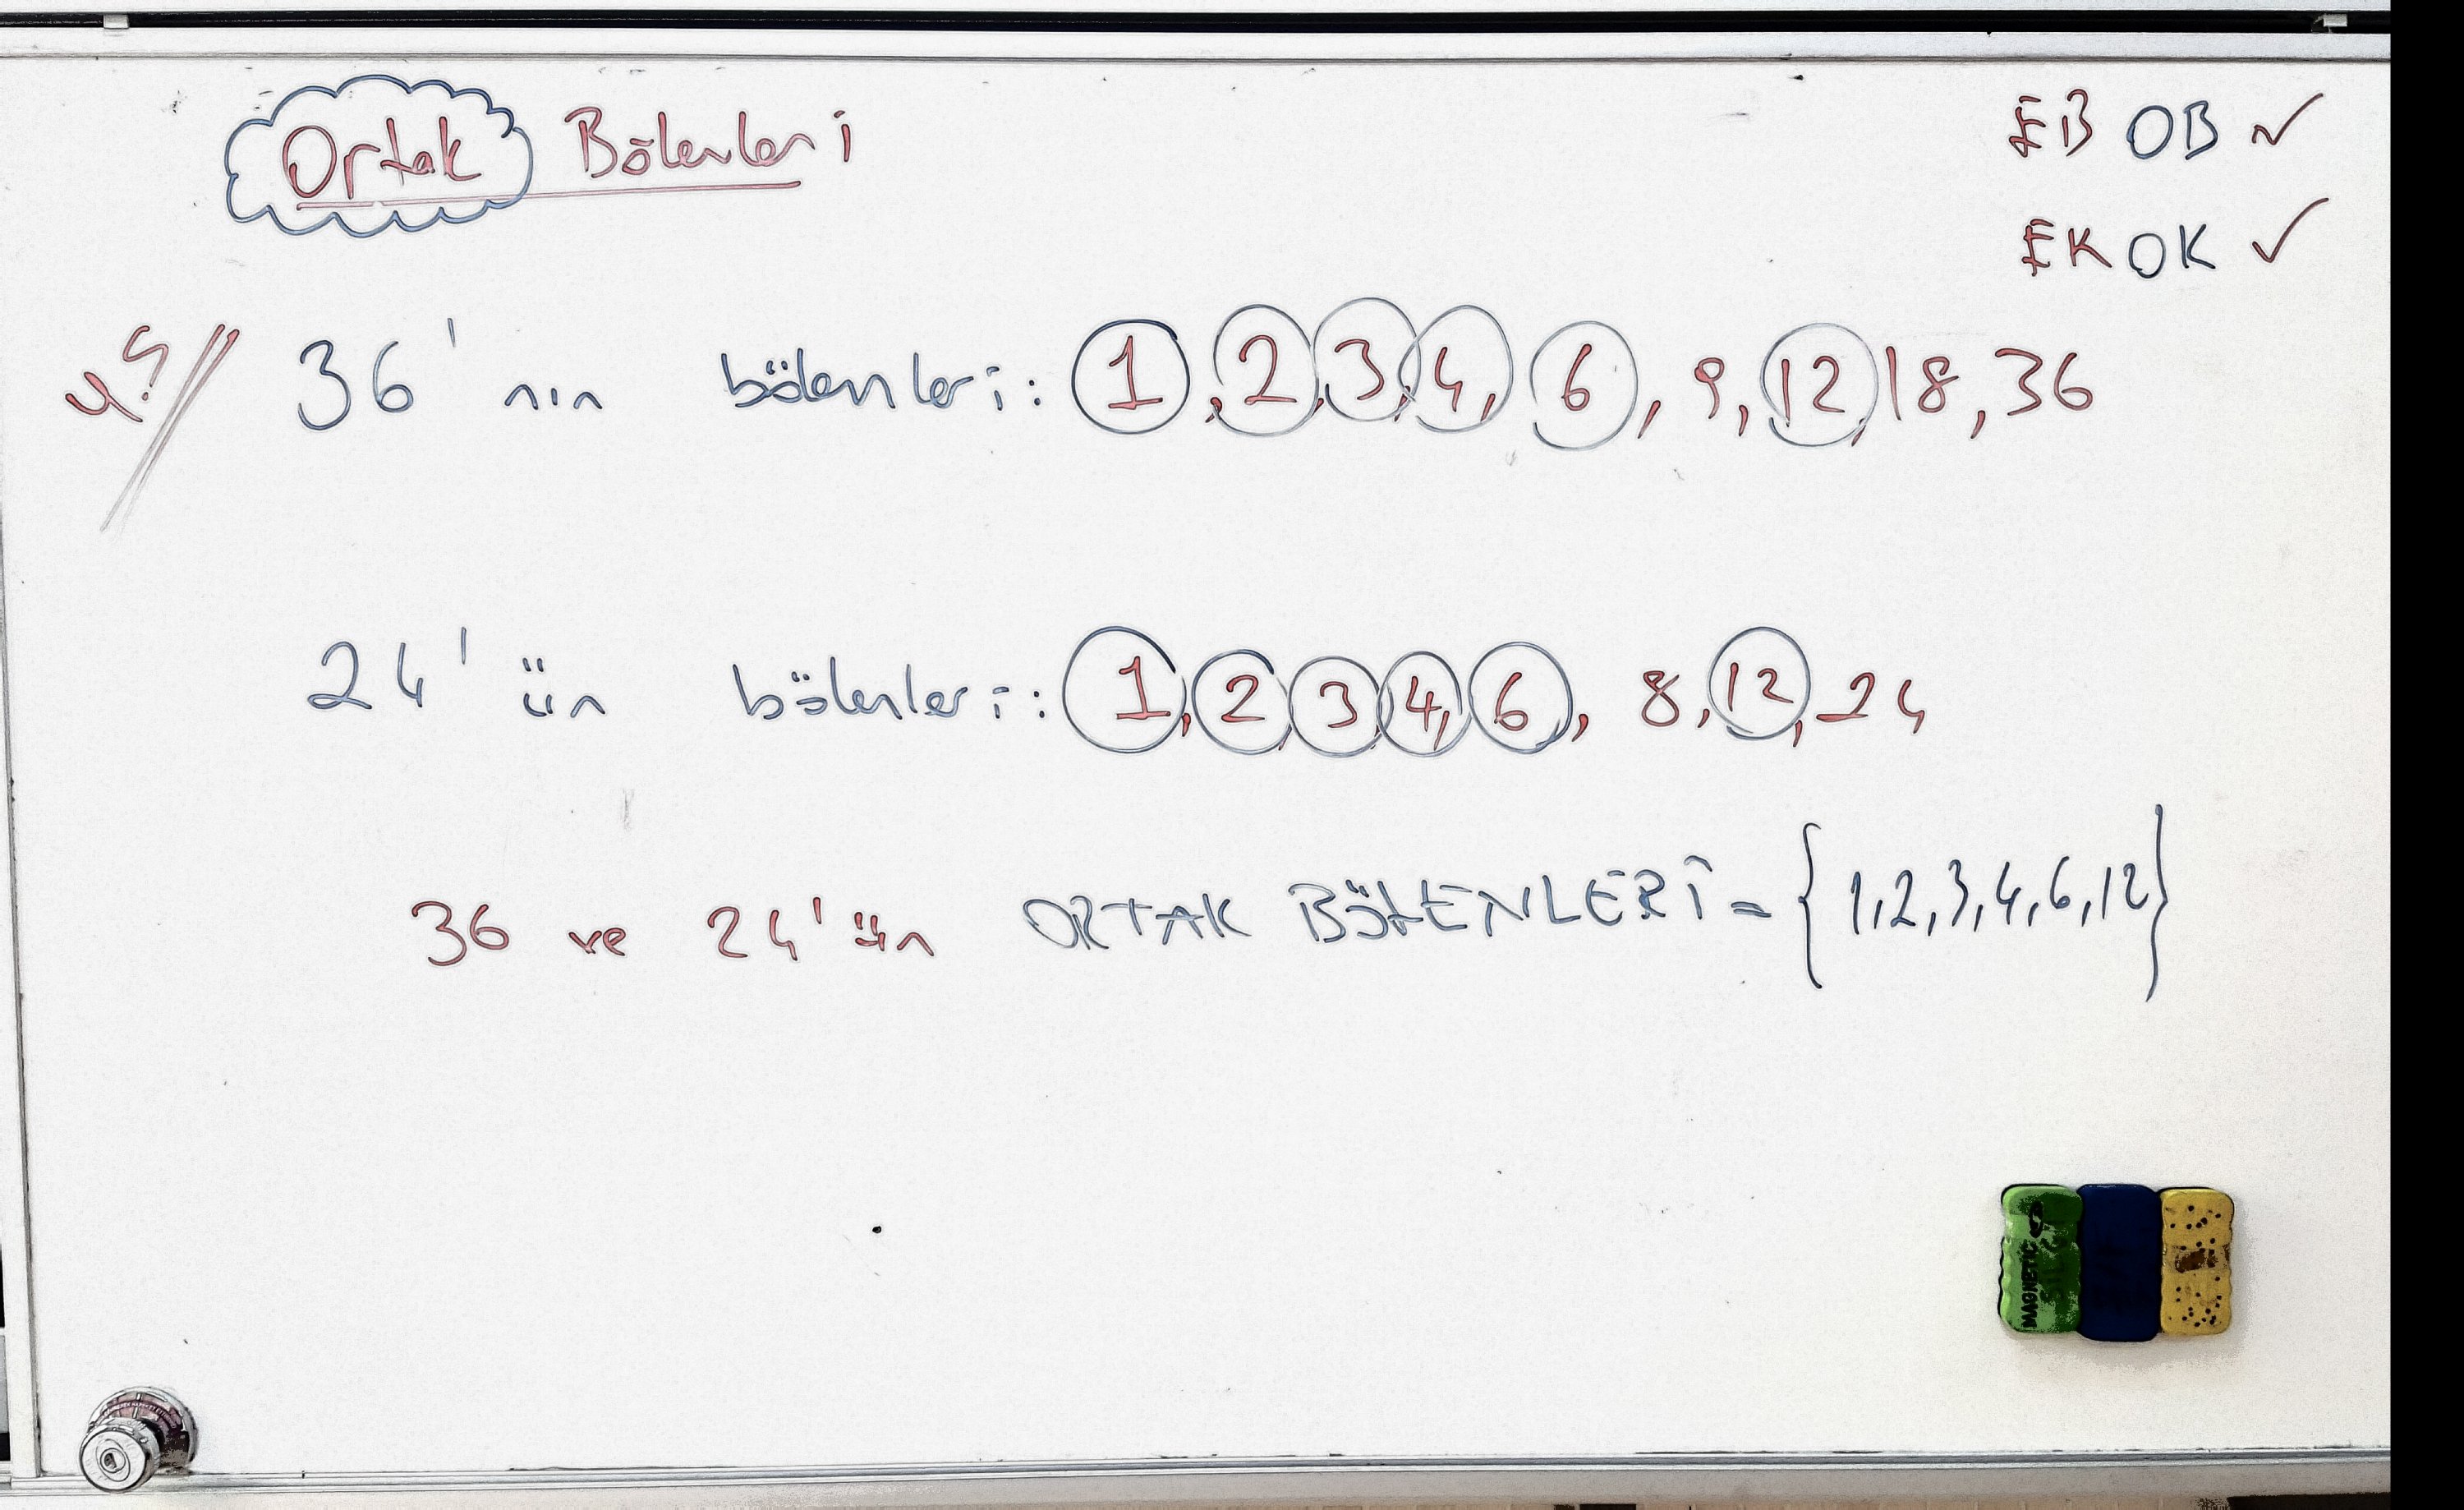 Ortak Bölenleri
EB OB ✓
EK OK ✓
36'nın bölenleri: 1, 2, 3, 4, 6, 9, 12, 18, 36
24'ün bölenleri: 1, 2, 3, 4, 6, 8, 12, 24
36 ve 24'ün ORTAK BÖLENLERİ = {1, 2, 3, 4, 6, 12}
MAGNETIC